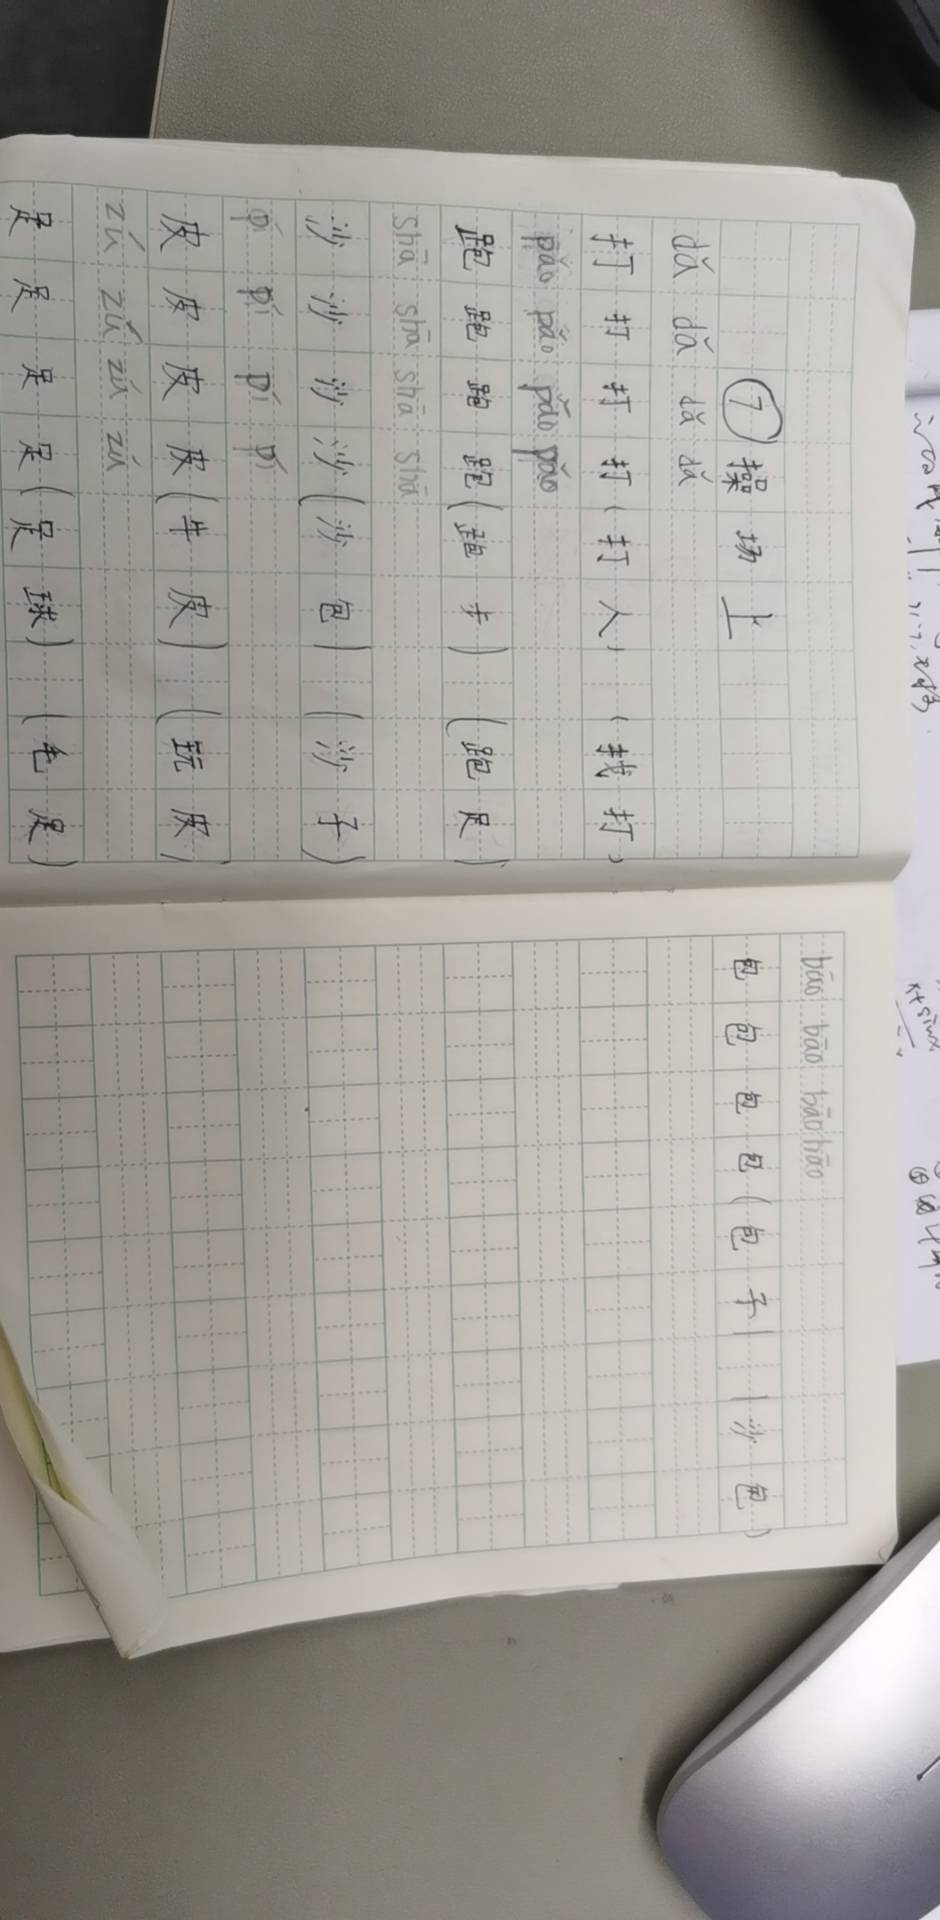 ⑦操场上
dǎ dǎ dǎ dǎ
打打打打(打人)(找打)
pǎo pǎo pǎo pǎo
跑跑跑跑(跑步)(跑足)
shā shā shā shā
沙沙沙沙(沙包)(沙子)
pí pí pí pí
皮皮皮皮(牛皮)(玩皮)
zú zú zú zú
足足足足(足球)(毛足)
bāo bāo bāo bāo
包包包包(包子)(沙包)
x+sinx